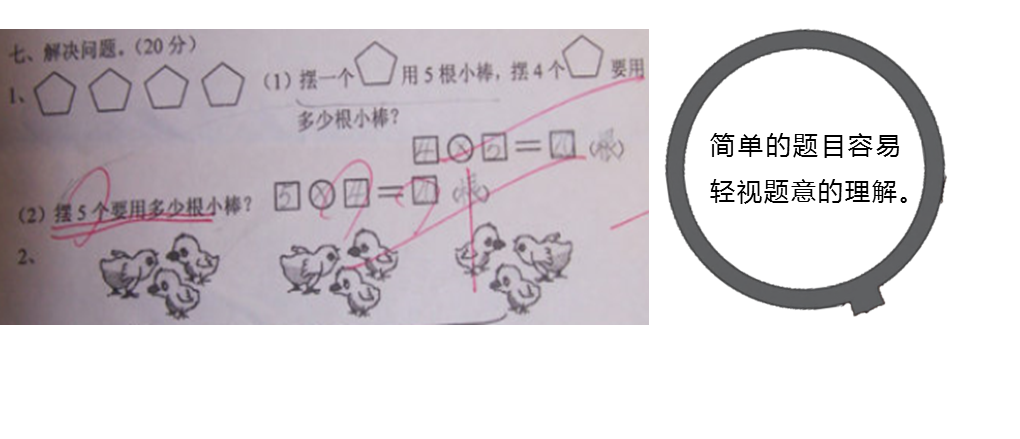 七、解决问题。(20分)
1、 (1) 摆一个 用5根小棒，摆4个 要用
多少根小棒？
4×5=20(根)
(2) 摆5个要用多少根小棒？ 5×4=20(根)
2、
简单的题目容易
轻视题意的理解。